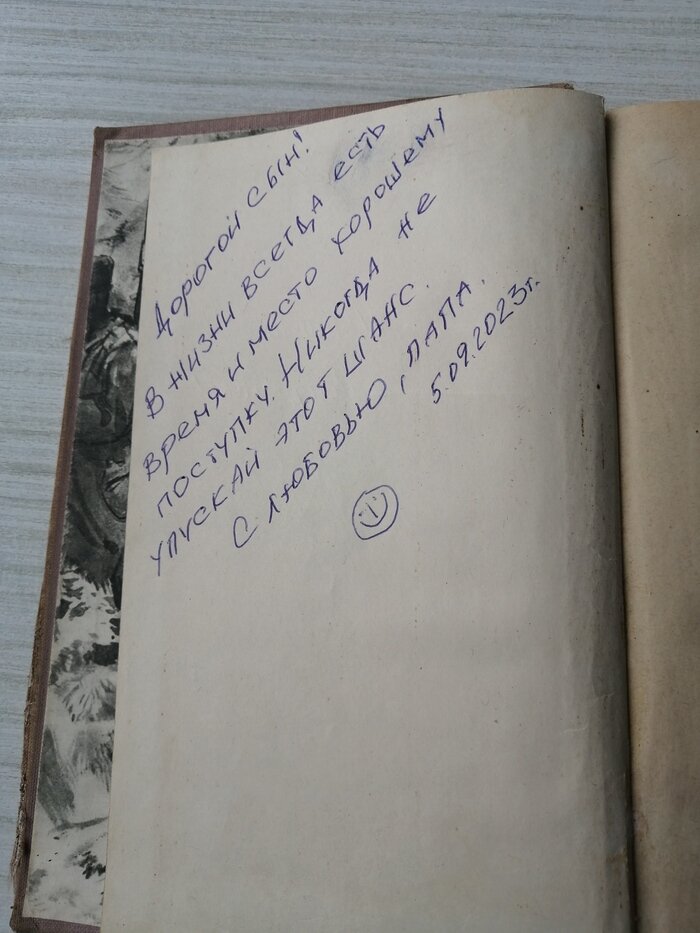 Дорогой сын!
В жизни всегда есть
время и место хорошему
поступку. Никогда не
упускай этот шанс.
С любовью, папа.
5.09.2023г.